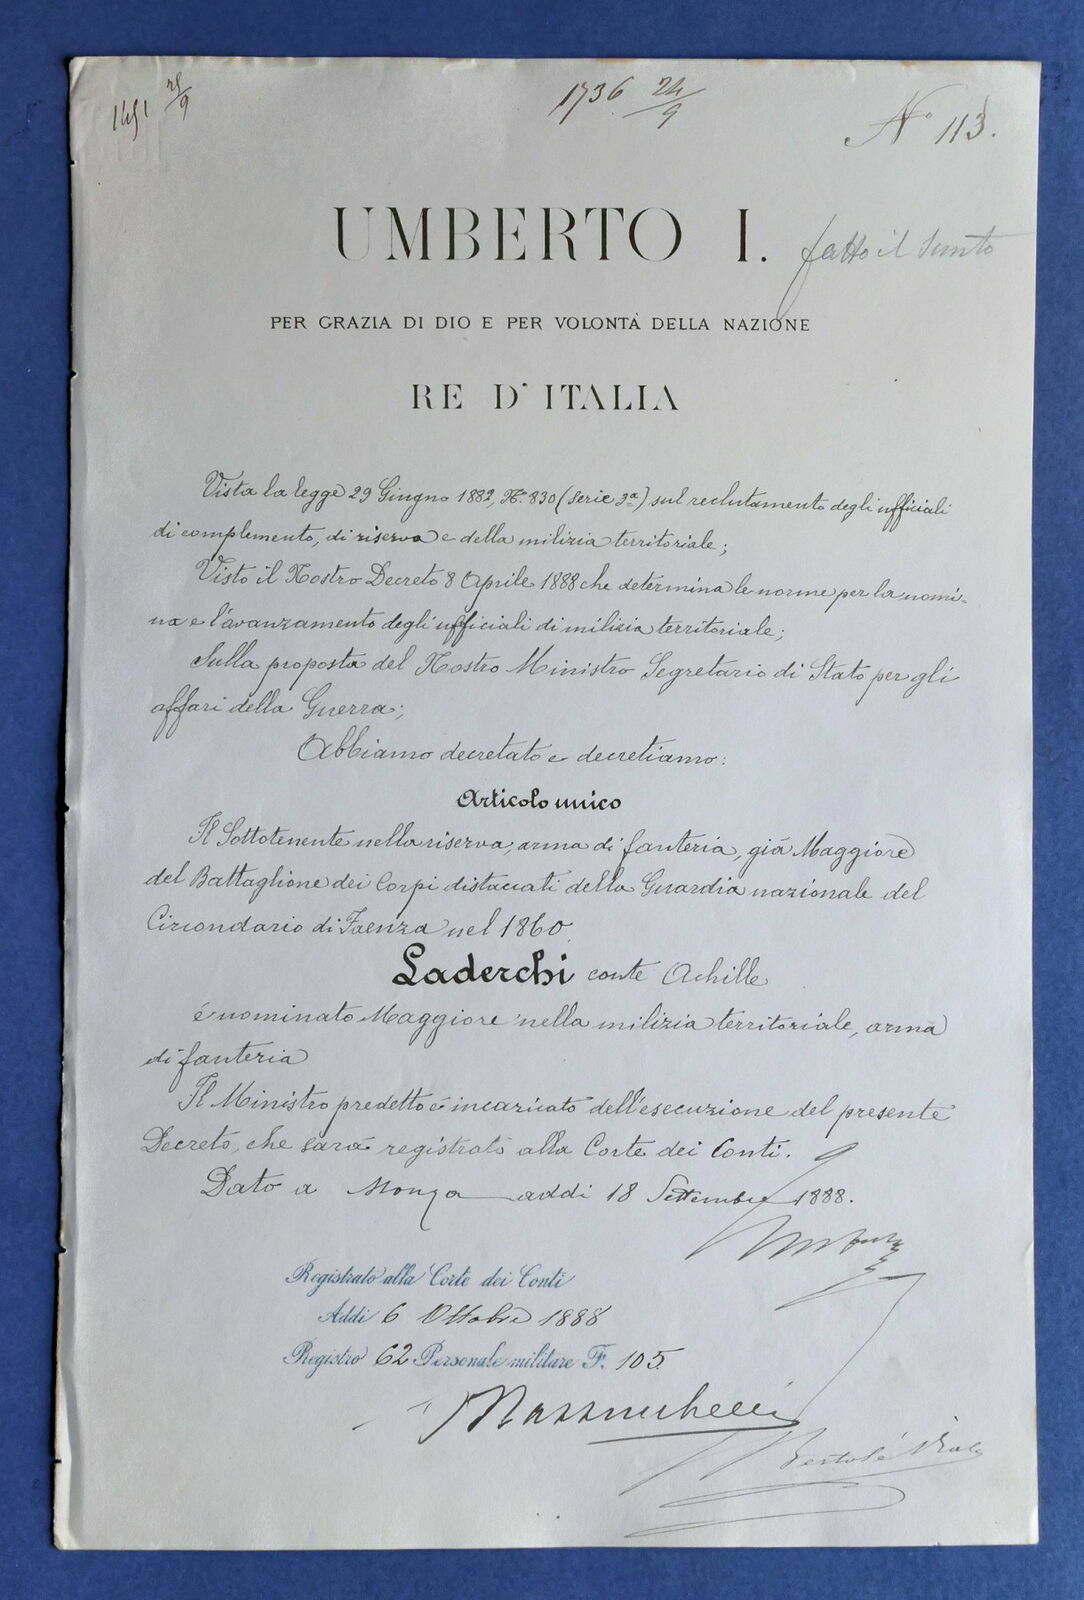 1451 25/9
1736 24/9
N° 113.
UMBERTO I.
fatto il Sunto
PER GRAZIA DI DIO E PER VOLONTÀ DELLA NAZIONE
RE D'ITALIA
Vista la legge 29 Giugno 1882, N.° 830 (Serie 3ª) sul reclutamento degli ufficiali
di complemento, di riserva e della milizia territoriale;
Visto il Nostro Decreto 8 Aprile 1888 che determina le norme per la nomi-
na e l'avanzamento degli ufficiali di milizia territoriale;
Sulla proposta del Nostro Ministro Segretario di Stato per gli
affari della Guerra;
Abbiamo decretato e decretiamo:
Articolo unico
Il Sottotenente nella riserva, arma di fanteria, già Maggiore
del Battaglione dei Corpi distaccati della Guardia nazionale del
Circondario di Faenza nel 1860
Laderchi conte Achille
é nominato Maggiore nella milizia territoriale, arma
di fanteria
Il Ministro predetto é incaricato dell'esecuzione del presente
Decreto, che sarà registrato alla Corte dei Conti.
Dato a Monza addi 18 Settembre 1888.
Umberto
Registrato alla Corte dei Conti
Addi 6 Ottobre 1888
Registro 62 Personale militare F. 105
Bertolé Viale